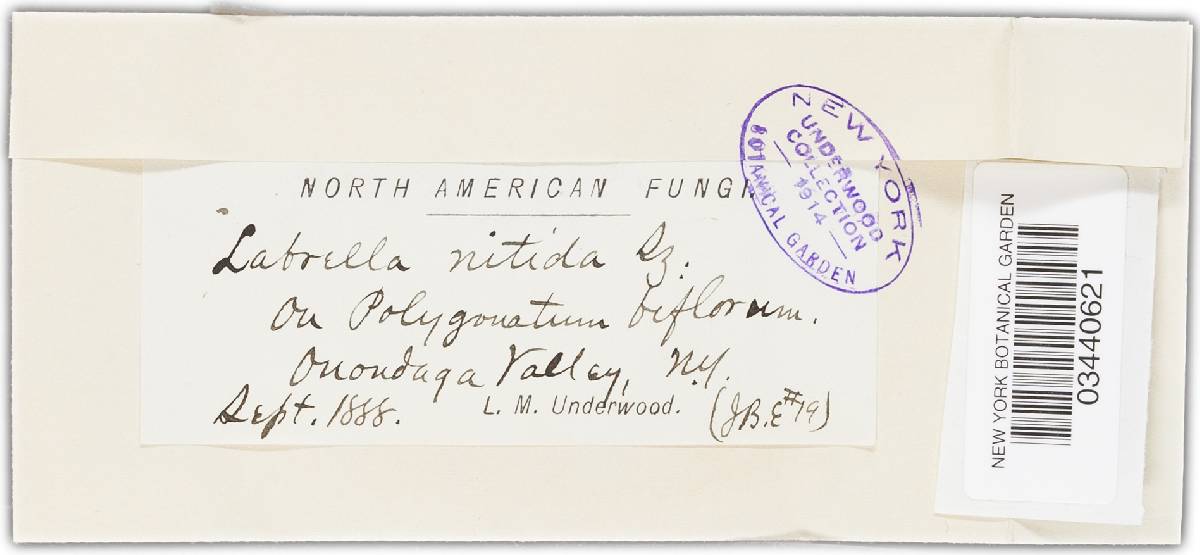 NORTH AMERICAN FUNGI
Labrella nitida Sz.
On Polygonatum biflorum.
Onondaga Valley, N.Y.
Sept. 1888. L. M. Underwood. (J.B.E #79)
NEW YORK
BOTANICAL GARDEN
UNDERWOOD
COLLECTION
— 1914 —
NEW YORK BOTANICAL GARDEN
03440621